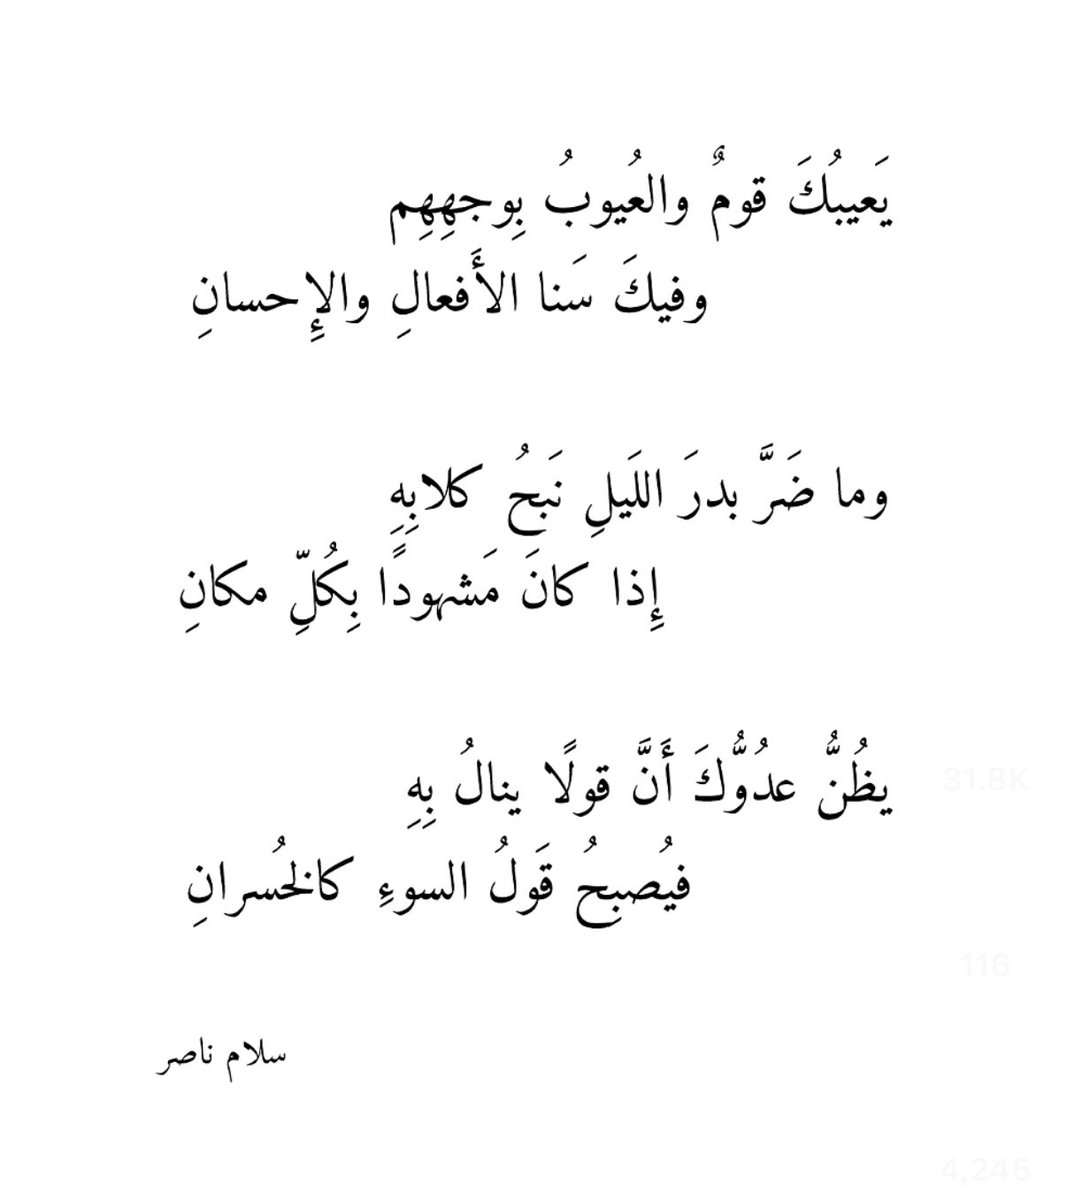 يَعيبُكَ قومٌ والعُيوبُ بِوجهِهِم
وفيكَ سَنا الأَفعالِ والإِحسانِ
وما ضَرَّ بدرَ اللَيلِ نَبحُ كلابِهِ
إِذا كانَ مَشهودًا بِكُلِّ مكانِ
يظُنُّ عدُوُّكَ أَنَّ قولًا ينالُ بِهِ
فيُصبِحُ قَولُ السوءِ كالخُسرانِ
سلام ناصر
31.8K
116
4,245